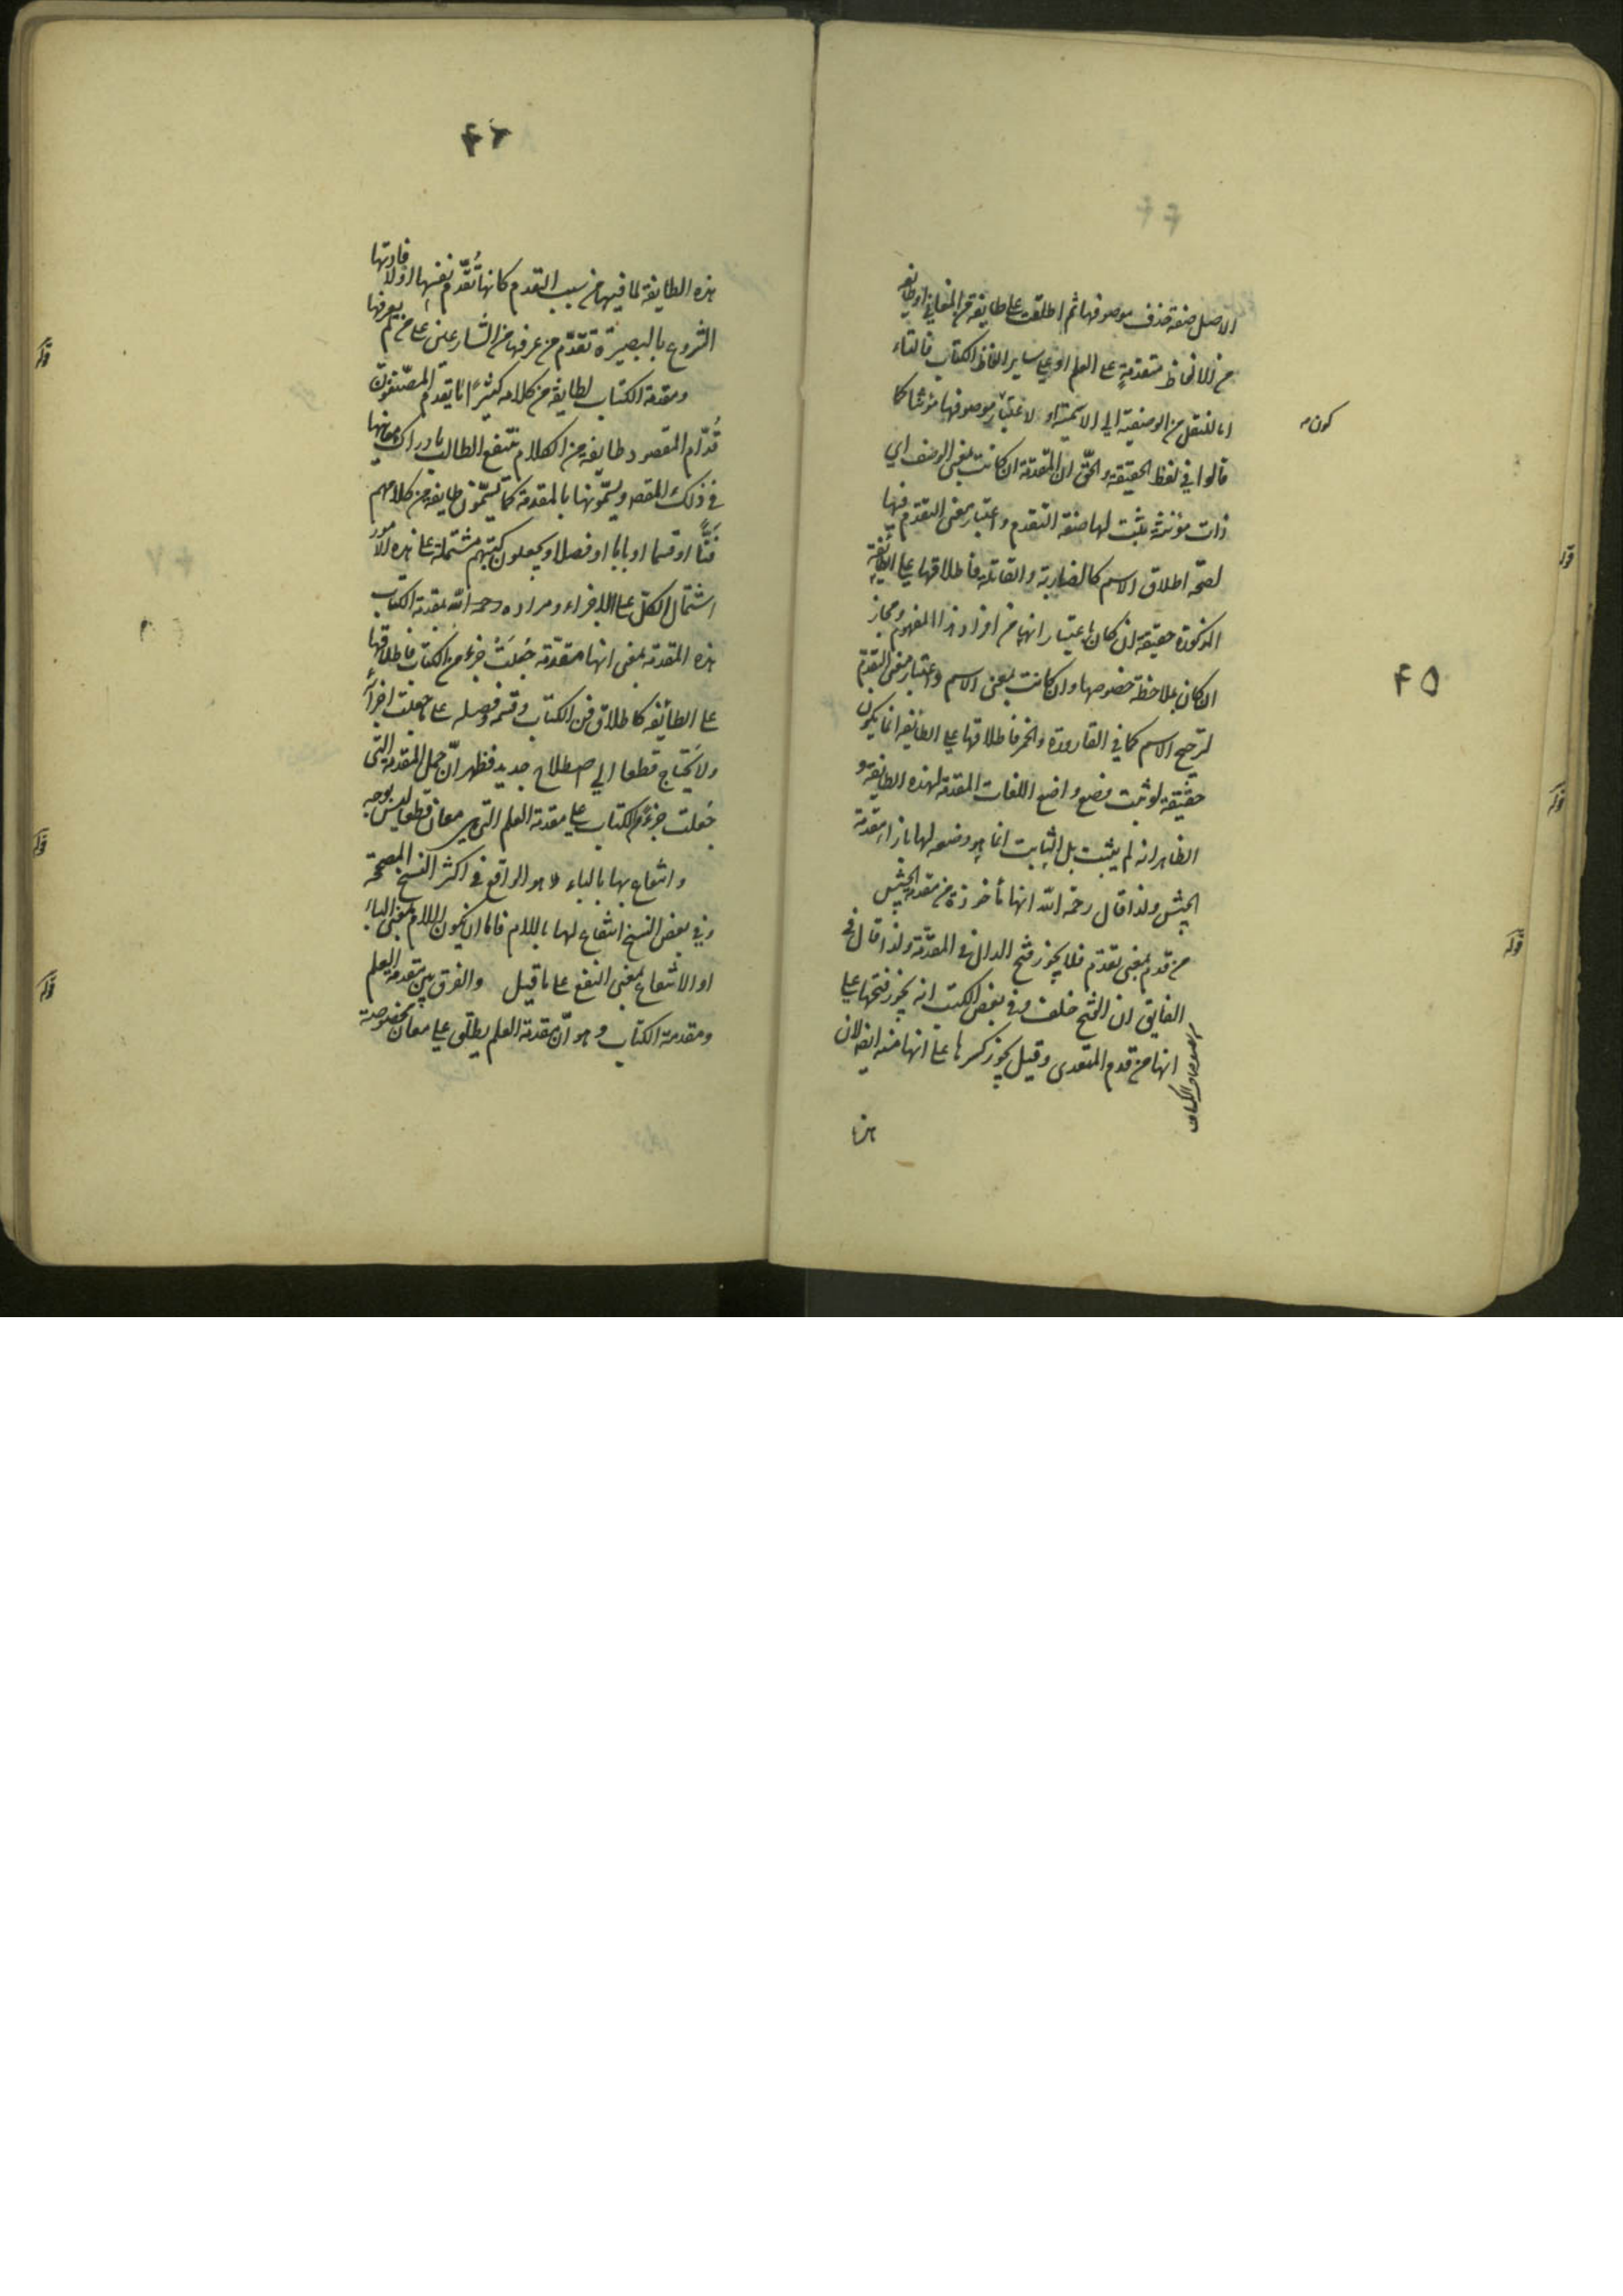 الاصل صفة حذف موصوفها ثم اطلقت على طايفة من المعاني او طايفة
من الالفاظ متقدمةٍ على العلم او على ساير الفاظ الكتاب فالتاء
اما للنقل من الوصفية الى الاسمية او لاعتبار موصوفها مؤنثا كما
كون
قالوا في لفظ الحقيقة والحقّ ان المقدمة ان كانت بمعنى الوصف اي
ذات مؤنثة يثبت لها صفة التقدم واعتبار معنى التقدم فيها
لصحة اطلاق الاسم كالضاربة والقاتلة فاطلاقها على الطائفة
المذكورة حقيقة ان كان باعتبار انها من افراد هذا المفهوم ومجاز
ان كان بملاحظة خصوصها وان كانت بمعنى الاسم واعتبار معنى التقدم
۴۵
لترجيح الاسم كما في القارورة والخمر فاطلاقها على الطايفة انما يكون
حقيقة لو ثبت وضع واضع اللغات المقدمة لهذه الطايفة و
الظاهر انه لم يثبت بل الثابت انما هو وضعه لها بازاء مقدمة
الجيش ولذا قال رحمه الله انها مأخوذة من مقدمة الجيش
من قدم بمعنى تقدّم فلا يجوز فتح الدال في المقدّمة ولذا قال في
الفايق ان الفتح خلف وفي بعض الكتب انه يجوز فتحها على
انها من قدم المتعدى وقيل يجوز كسرها على انها منه ايضا لان
هذه
۴۶
هذه الطايفة لما فيها من سبب التقدم كانها تُقدّم نفسها او لافادتها
الشروع بالبصيرة تقدّم من عرفها من الشارعين على من لم يعرفها
ومقدمة الكتاب لطايفة من كلامه كثيرًا ما يقدم المصنفون
قُدّام المقصود طايفة من الكلام ينتفع الطالب بادراك معانيها
في ذلك المقصد ويسمّونها بالمقدمة كما يسمّون طايفة من كلامهم
فنًّا او قسما او بابا او فصلا ويجعلون كتبهم مشتملة على هذه الامور
اشتمال الكلّ على الاجزاء ومراده رحمه الله بمقدمة الكتاب
هذه المقدمة بمعنى انها مقدّمة جُعلَتْ جزء من الكتاب فاطلاقها
على الطائفة كاطلاق فن الكتاب وقسمه وفصله على ما جعلت اجزاءً
ولا يَحتاج قطعا الى اصطلاح جديد فظهر انّ حمل المقدمة التى
جُعلت جزءً من الكتاب على مقدمة العلم التى هى معان قطعا ليس بوجه
وانتفاع بها بالباء هو الواقع في اكثر النسخ المصححة
وفي بعض النسخ انتفاع لها باللام فاما ان يكون اللام بمعنى الباء
او الانتفاع بمعنى النفع على ما قيل والفرق بين مقدمة العلم
ومقدمة الكتاب وهو انّ مقدمة العلم يطلق على معان مخصوصة